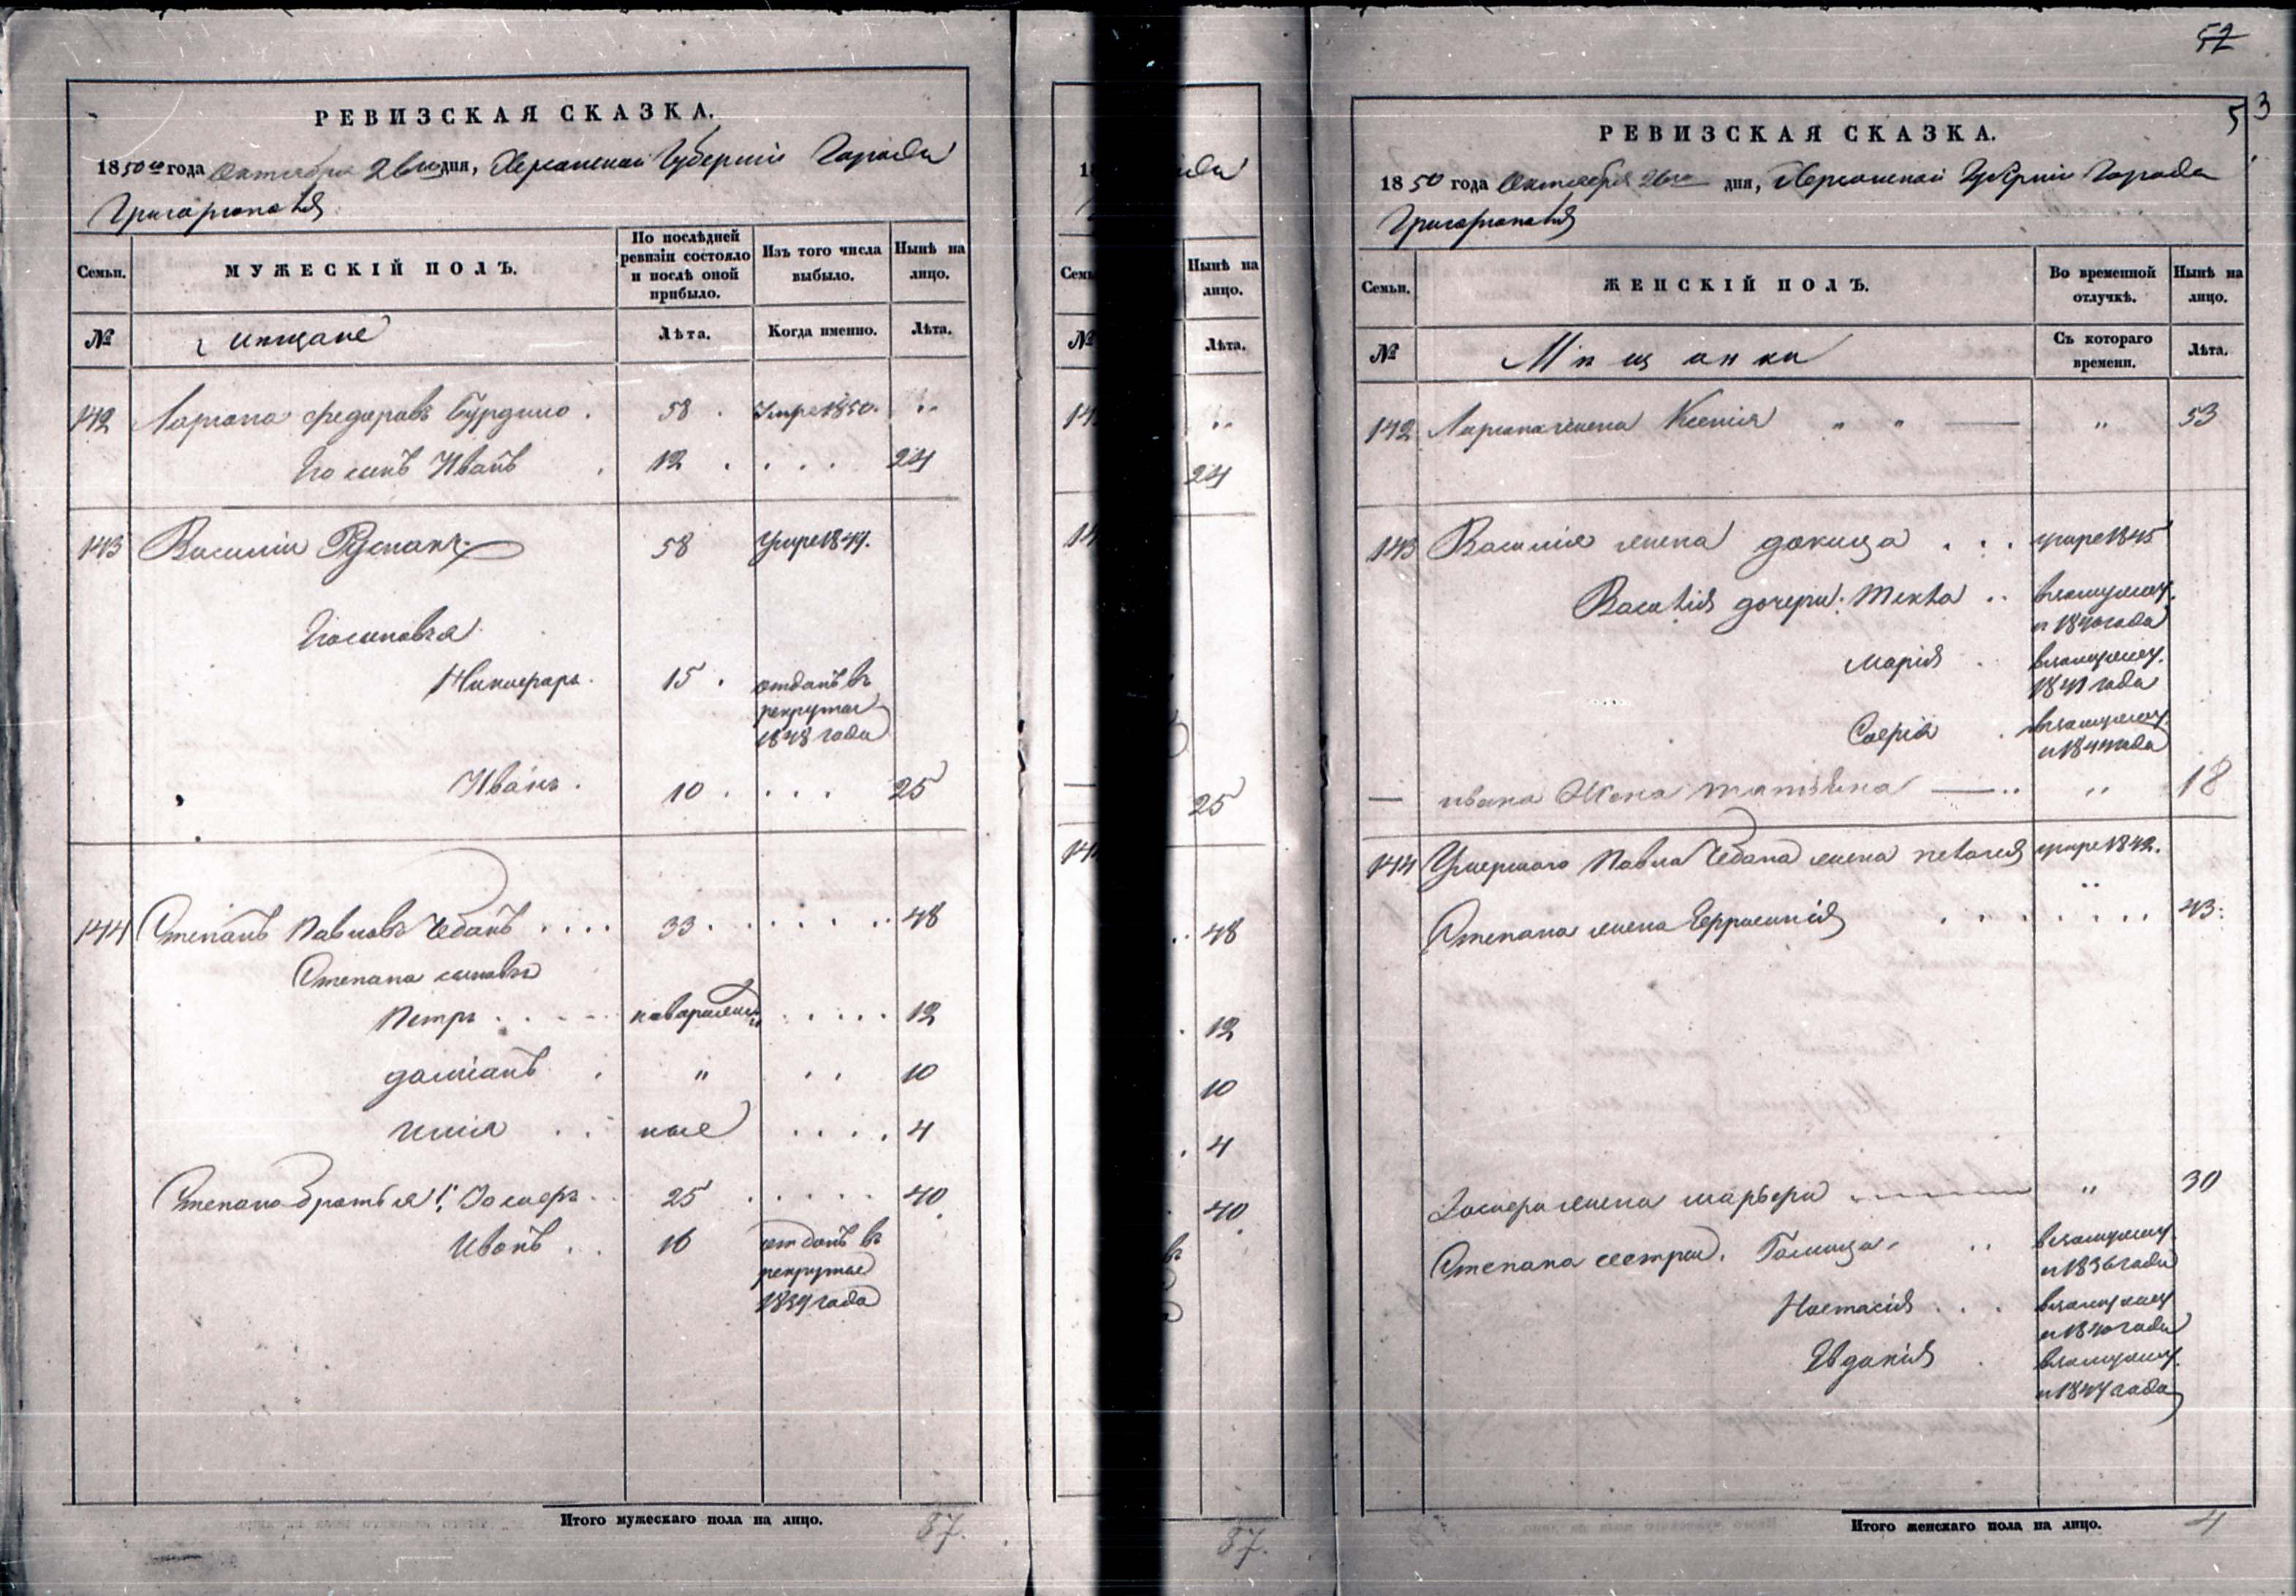 РЕВИЗСКАЯ СКАЗКА.
1850го года Октября 26го дня, Херсонской Губернии Города
Григориополя
Семьи. МУЖЕСКІЙ ПОЛЪ. По послѣдней ревизіи состояло и послѣ оной прибыло. Изъ того числа выбыло. Нынѣ на лицо.
№ мѣщане Лѣта. Когда именно. Лѣта.
142 Лариона Федоровъ 58 Умре 1850. "
Его сынъ Иванъ 12 24
143 Василій 58 Умре 1844.
Его сыновья
Никифоръ 15 отданъ въ
рекруты
1848 года
Иванъ 10 25
144 Степанъ Павловъ Чебанъ 33 48
Степана сыновья
Петръ новорожден 12
Даміанъ " 10
Илія ные 4
Степана братья: Іосифъ 25 40
Иванъ 16 отданъ въ
рекруты
1839 года
Итого мужескаго пола на лицо. 87.
ода
Семь Нынѣ на лицо.
№ Лѣта.
14 "
24
14
25
14
48
12
10
4
40
въ
87.
52
53
РЕВИЗСКАЯ СКАЗКА.
1850 года Октября 26го дня, Херсонской Губерніи Города
Григориополя
Семьи. ЖЕНСКІЙ ПОЛЪ. Во временной отлучкѣ. Нынѣ на лицо.
№ Мѣщанки Съ котораго времени. Лѣта.
142 Лариона жена Ксенія " " " 53
143 Василія жена Докица умре 1845
Василія дочери: Текла в замужес.
с 1840 года
Марія в замужес.
1841 года
Софія в замужес.
с 1844 года
— Ивана Жена Татіяна " 18
144 Умершаго Павла Чебана жена умре 1842.
Степана жена Ефросинія 43
Іосифа жена " 30
Степана сестры. в замужес.
с 1836 года
Настасія в замужес.
с 1840 года
Евдокія в замужес.
с 1844 года
Итого женскаго пола на лицо. 4